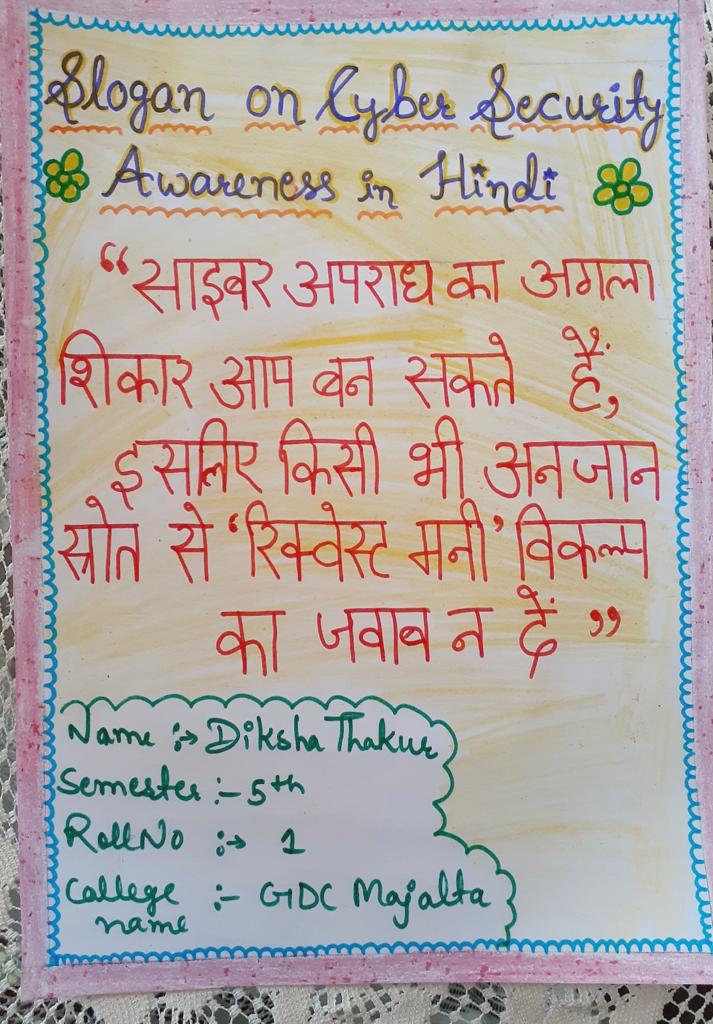 Slogan on Cyber Security
Awareness in Hindi
“साइबर अपराध का अगला
शिकार आप बन सकते हैं,
इसलिए किसी भी अनजान
स्रोत से ‘रिक्वेस्ट मनी’ विकल्प
का जवाब न दें”
Name :→ Diksha Thakur
Semester :- 5th
Roll No :→ 1
College :- GDC Majalta
name